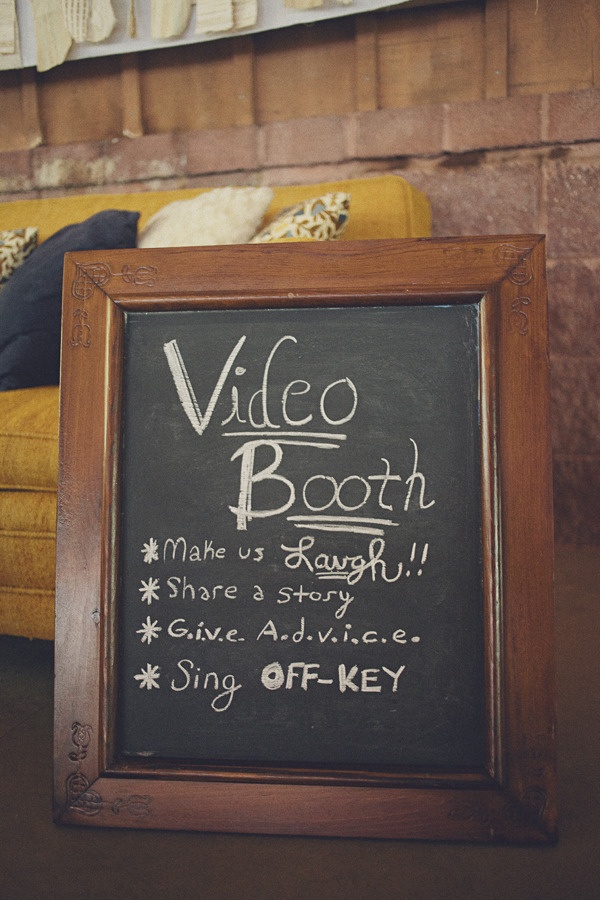 Video
Booth
* Make us Laugh!!
* Share a story
* G.i.v.e. A.d.v.i.c.e.
* Sing OFF-KEY